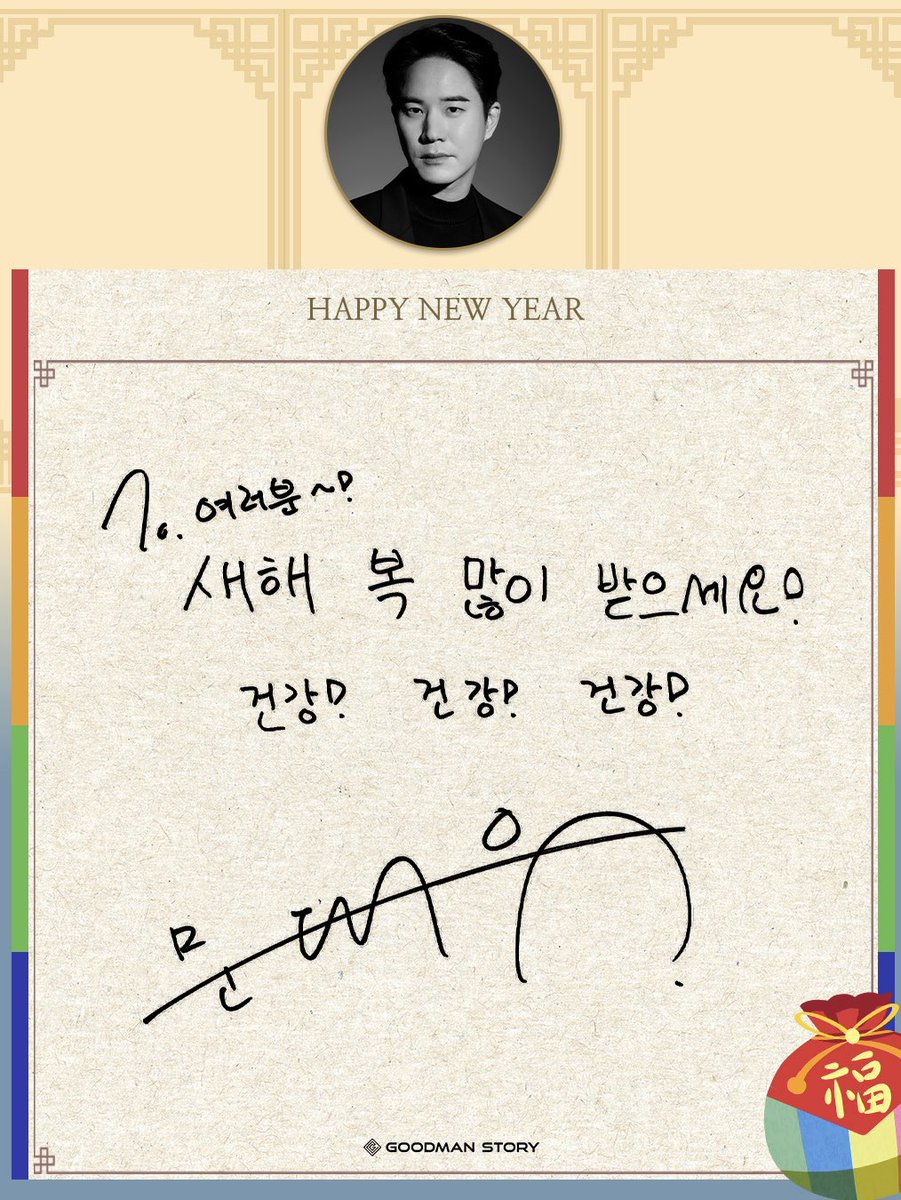 HAPPY NEW YEAR
To. 여러분~!
새해 복 많이 받으세요!
건강! 건강! 건강!
GOODMAN STORY
福